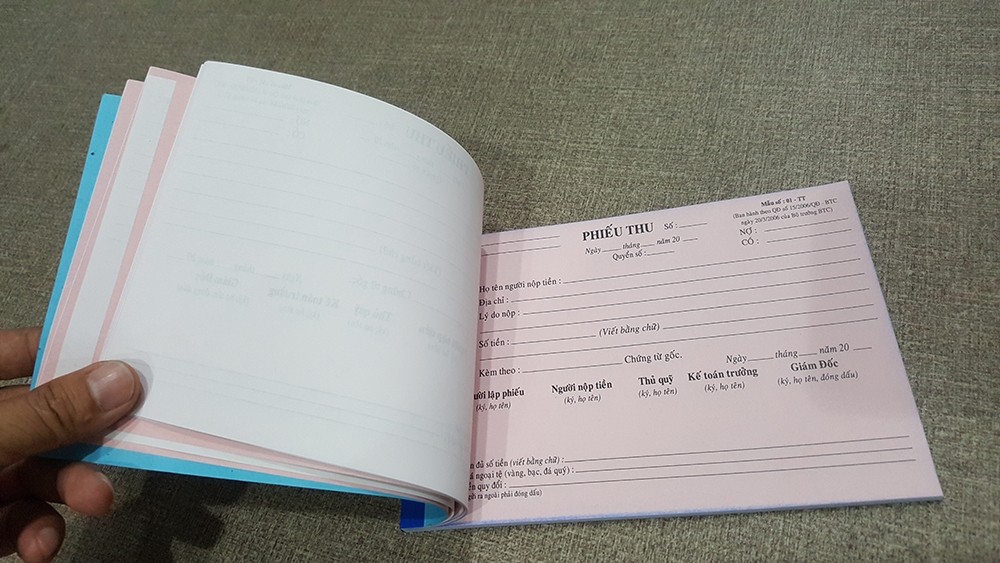 PHIẾU THU Số :
Mẫu số : 01 - TT
(Ban hành theo QĐ số 15/2006/QĐ - BTC
ngày 20/3/2006 của Bộ trưởng BTC)
Ngày tháng năm 20
Quyển số :
NỢ :
CÓ :
Họ tên người nộp tiền :
Địa chỉ :
Lý do nộp :
Số tiền : (Viết bằng chữ)
Kèm theo : Chứng từ gốc.
Ngày tháng năm 20
lập phiếu Người nộp tiền Thủ quỹ Kế toán trưởng Giám Đốc
(ký, họ tên) (ký, họ tên) (ký, họ tên) (ký, họ tên) (ký, họ tên, đóng dấu)
đủ số tiền (viết bằng chữ) :
ngoại tệ (vàng, bạc, đá quý) :
quy đổi :
ra ngoài phải đóng dấu)